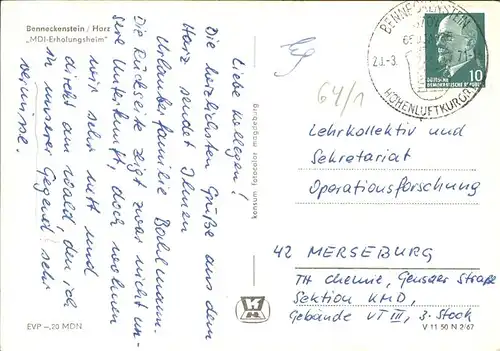 Benneckenstein / Harz
„MDI-Erholungsheim"
Liebe Kollegen!
Die herzlichsten Grüße aus dem
Harz sendet Ihnen
Urlauberfamilie
Die Rückseite zeigt zwar nicht un-
sere Unterkunft, doch wohnen
wir sehr nett und
direkt am Wald, den ich
in unserer Gegend sehr
vermisse.
EVP -,20 MDN
konsum fotocolor magdeburg
64/1
BENNECKENSTEIN
HÖHENLUFTKURORT
DEUTSCHE
DEMOKRATISCHE REPUBLIK
10
Lehrkollektiv und
Sekretariat
Operationsforschung
42 MERSEBURG
TH Chemie, Geusaer Straße
Sektion KMD,
Gebäude VT III, 3. Stock
V 11 50 N 2/67